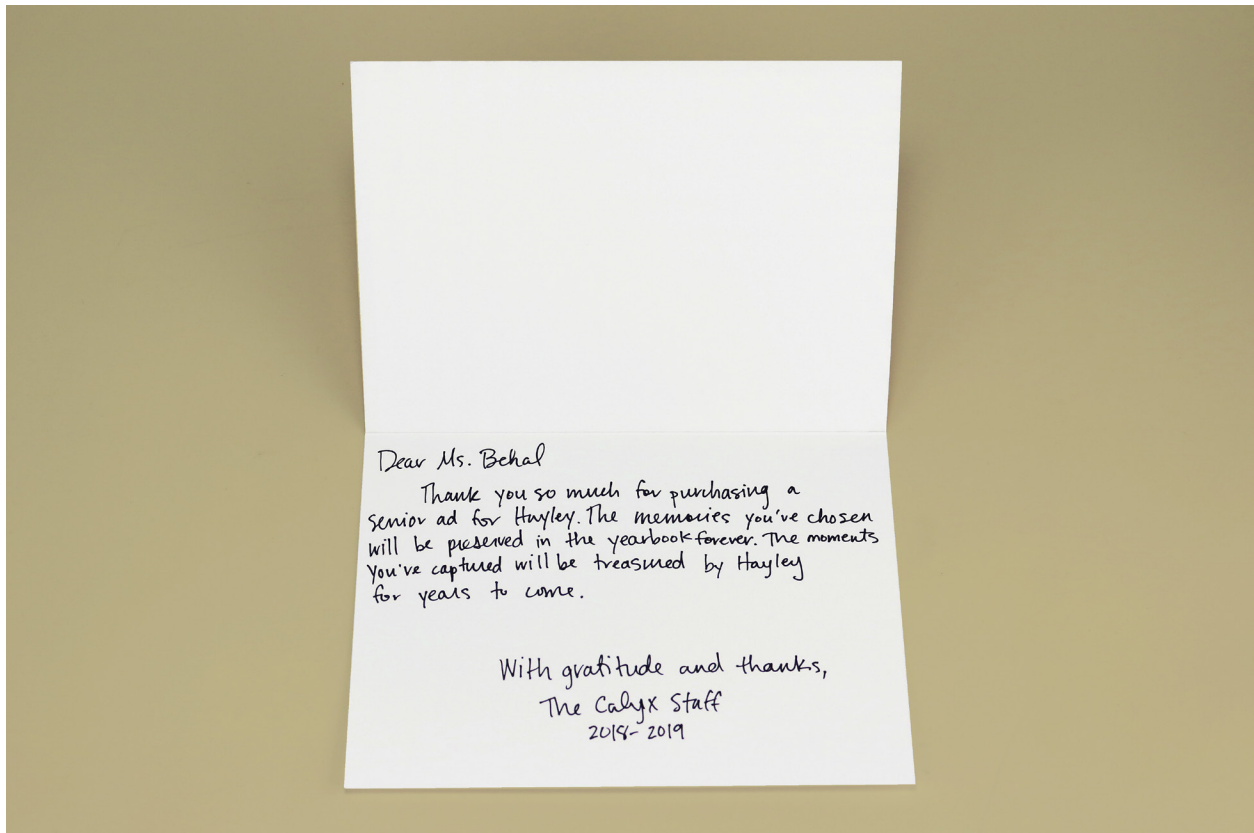 Dear Ms. Behal
Thank you so much for purchasing a
senior ad for Hayley. The memories you've chosen
will be preserved in the yearbook forever. The moments
you've captured will be treasured by Hayley
for years to come.
With gratitude and thanks,
The Calyx Staff
2018-2019